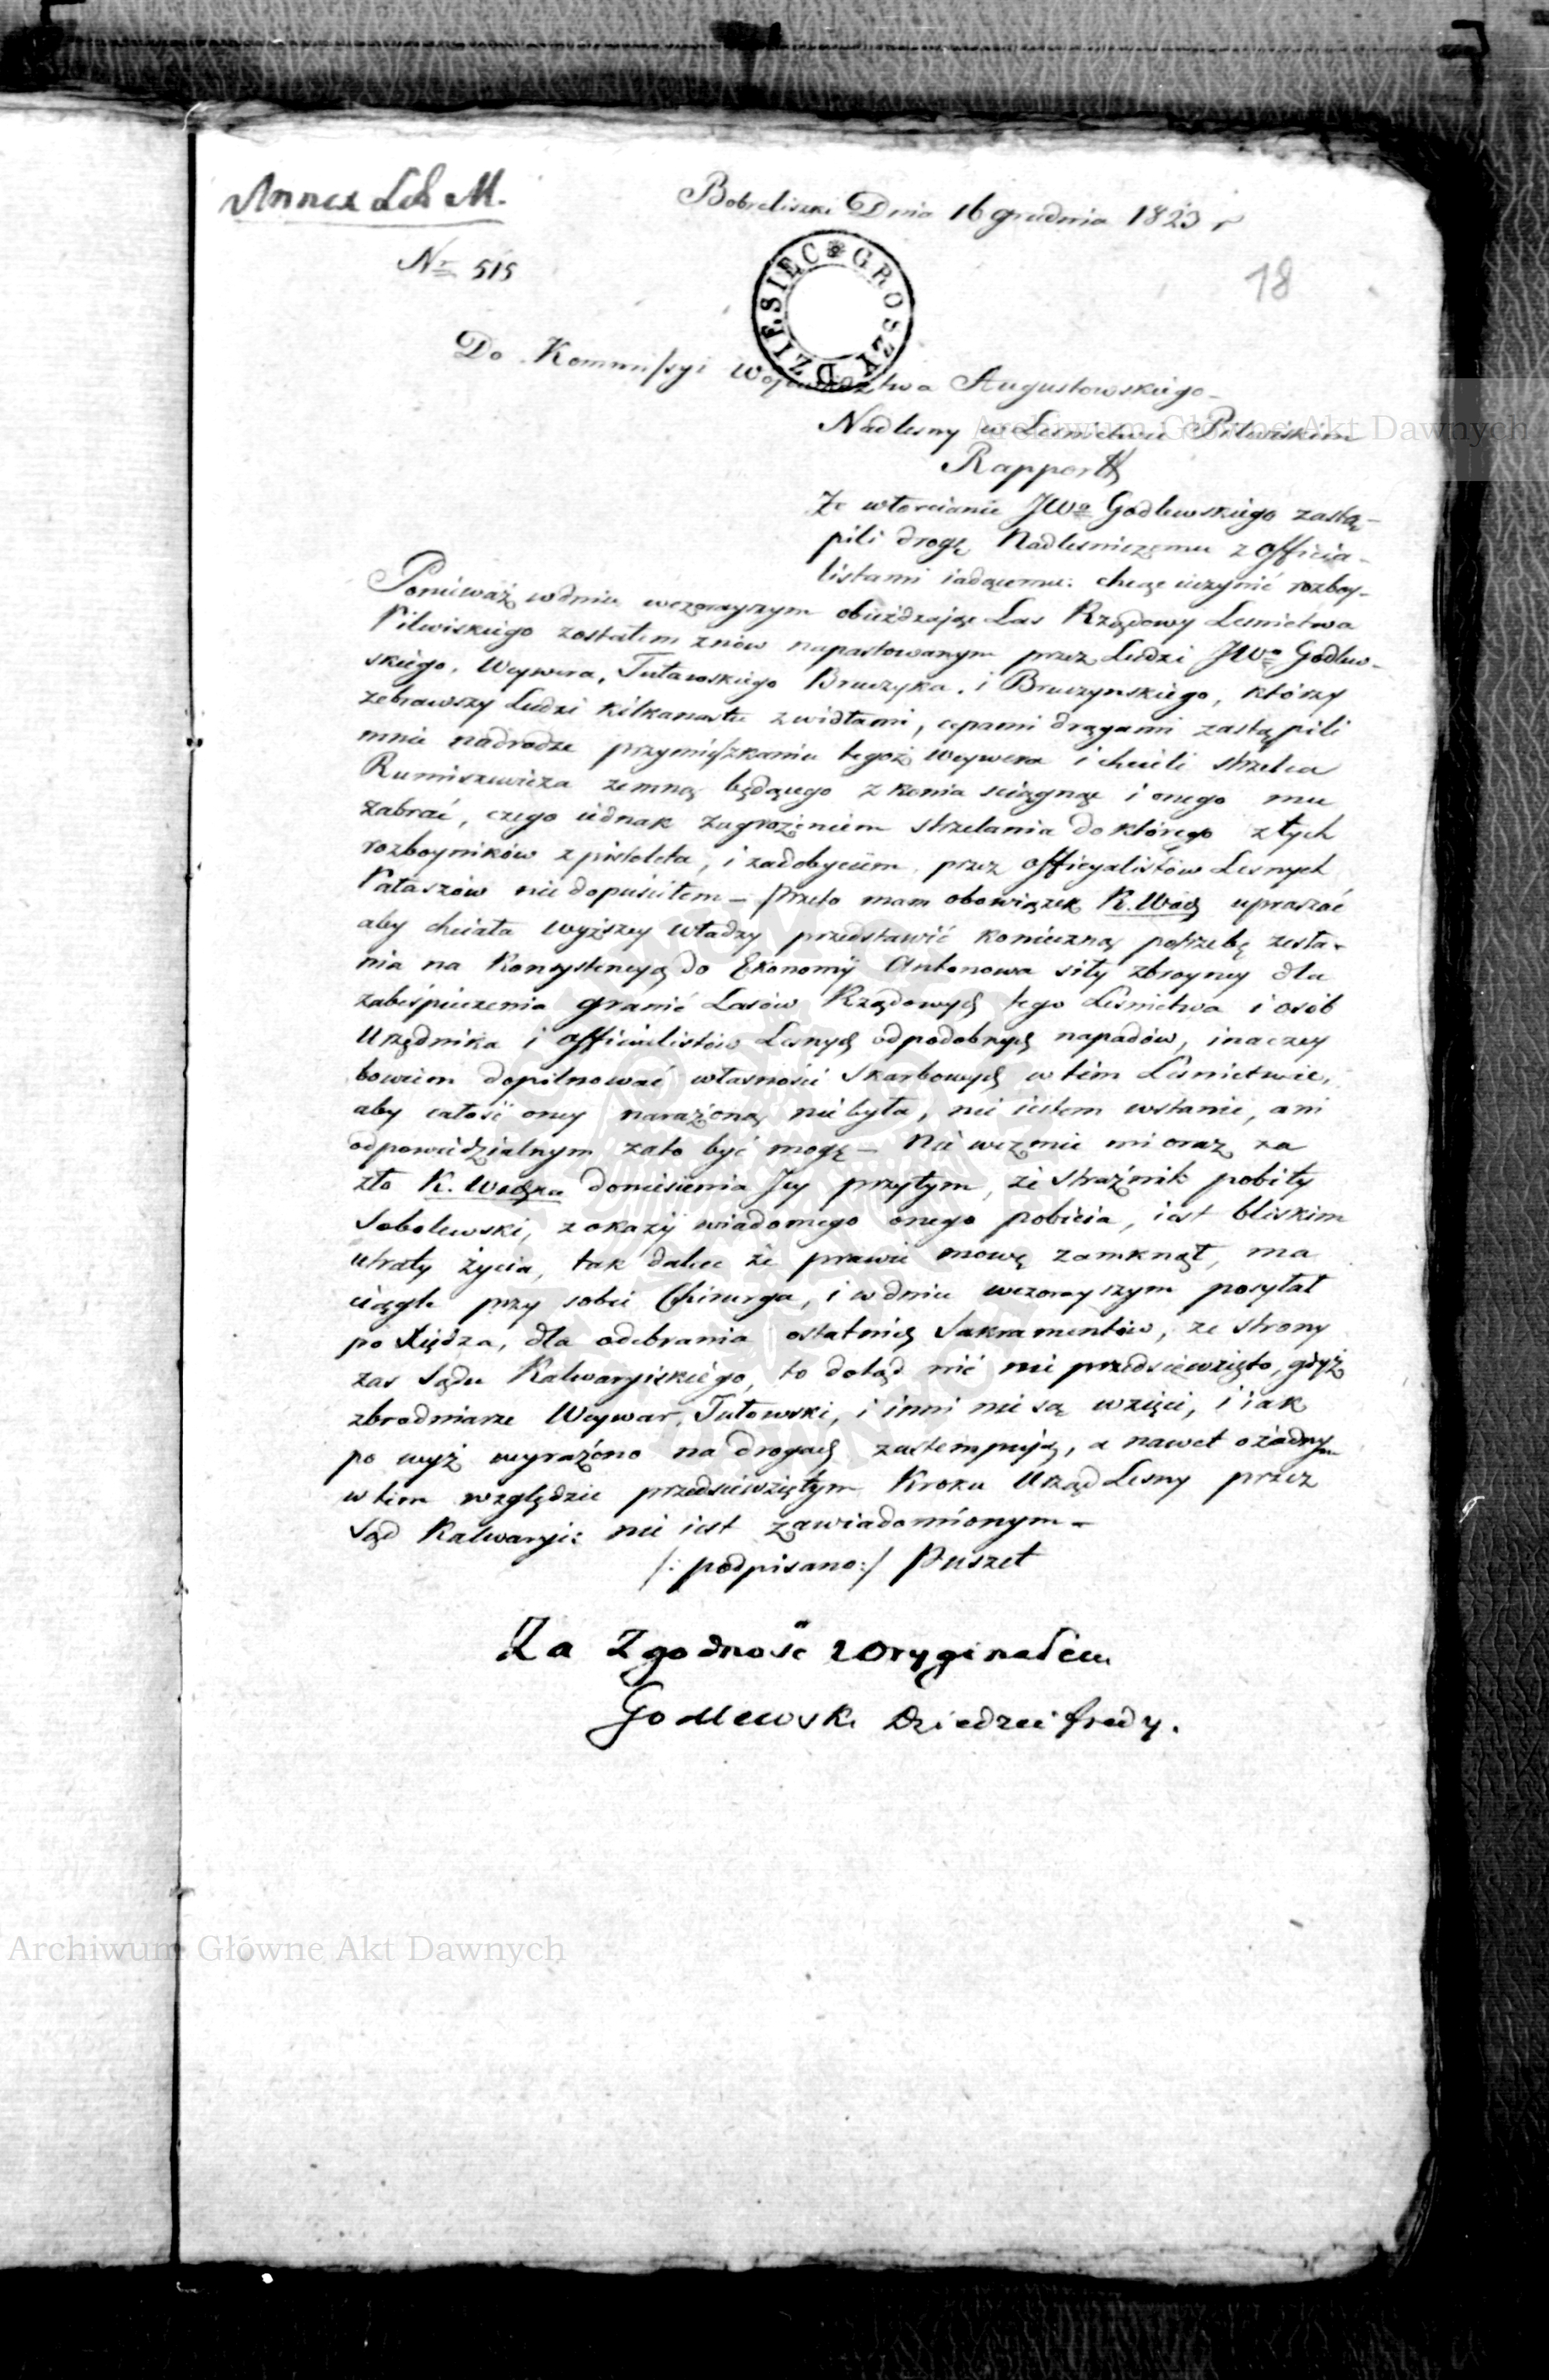 Annex Lit M.
Bobreliszki Dnia 16 Grudnia 1823 r
Nr 515
18
DZIESIĘC GROSZY
Do Kommissyi Wojewodztwa Augustowskiego
Nadlesny w Lesnictwie Pilwiskim
Rapport
Ze włoscianie JWo Godlewskiego zastą-
pili drogę Nadlesniczemu z officia-
listami iadącemu: chcąc uczynić rozboy-
Ponieważ w dniu wczorayszym obieżdzaiąc Las Rządowy Lesnictwa
Pilwiskiego zostałem znów napastowanym przez Ludzi JWo Godlew-
skiego, Weywera, Tutawskiego Bruczyka, i Bruczynskiego, którzy
zebrawszy Ludzi kilkanastu z widłami, cepami drągami zastąpili
mnie nadrodze przymięszkaniu tegoż Weywera i chcieli strzelca
Rumiszewicza zemną będącego z konia sciągnąc i onego mu
zabrać, czego iednak zagrożeniem strzelania do którego z tych
rozboyników z pistoleta, i zadobyciem przez officyalistów Lesnych
Pałaszów nie dopusciłem – przeto mam obowiązek K. Woich upraszać
aby chciała wyższey Władzy przedstawić konieczną potrzebę zesła-
nia na Konsystencyą do Ekonomÿ Antonowa siły zbroyney dla
zabespieczenia granić Lasów Rządowych tego Lesnictwa i osób
Urzędnika i officialistów Lesnych od podobnych napadów, inaczey
bowiem dopilnować własności Skarbowych w tem Lesnictwie,
aby całość oney narażoną nie była, nie iestem wstanie, ani
odpowiedzialnym zato być mogę – Nie wezmie mi oraz za
zło K. Wodzka doniesienia Jey przytym, że Strażnik pobity
Sobolewski, z okazÿ wiadomego onego pobicia, iest bliskim
utraty życia, tak dalece że prawie mowę zamknął, ma
ciągle przy sobie Chirurga, i w dniu wczorayszym posyłał
po Xiędza, dla odebrania ostatnich Sakramentów, ze strony
zas Sądu Kalwaryiskiego, to dotąd nić nie przedsiewzięto, gdyż
zbrodniarze Weywer, Tutowski, i inni nie są wzięci, i iak
po wyż wyrażono na drogach zastempuią, a nawet o żadnym
w tem względzie przedsiewziętym Kroku Urząd Lesny przez
Sąd Kalwaryi: nie iest zawiadomionym –
/: podpisano :/ Puszet
Za Zgodność z Oryginałem
Godlewski Dziedzic Fredy.
Archiwum Główne Akt Dawnych
Archiwum Główne Akt Dawnych